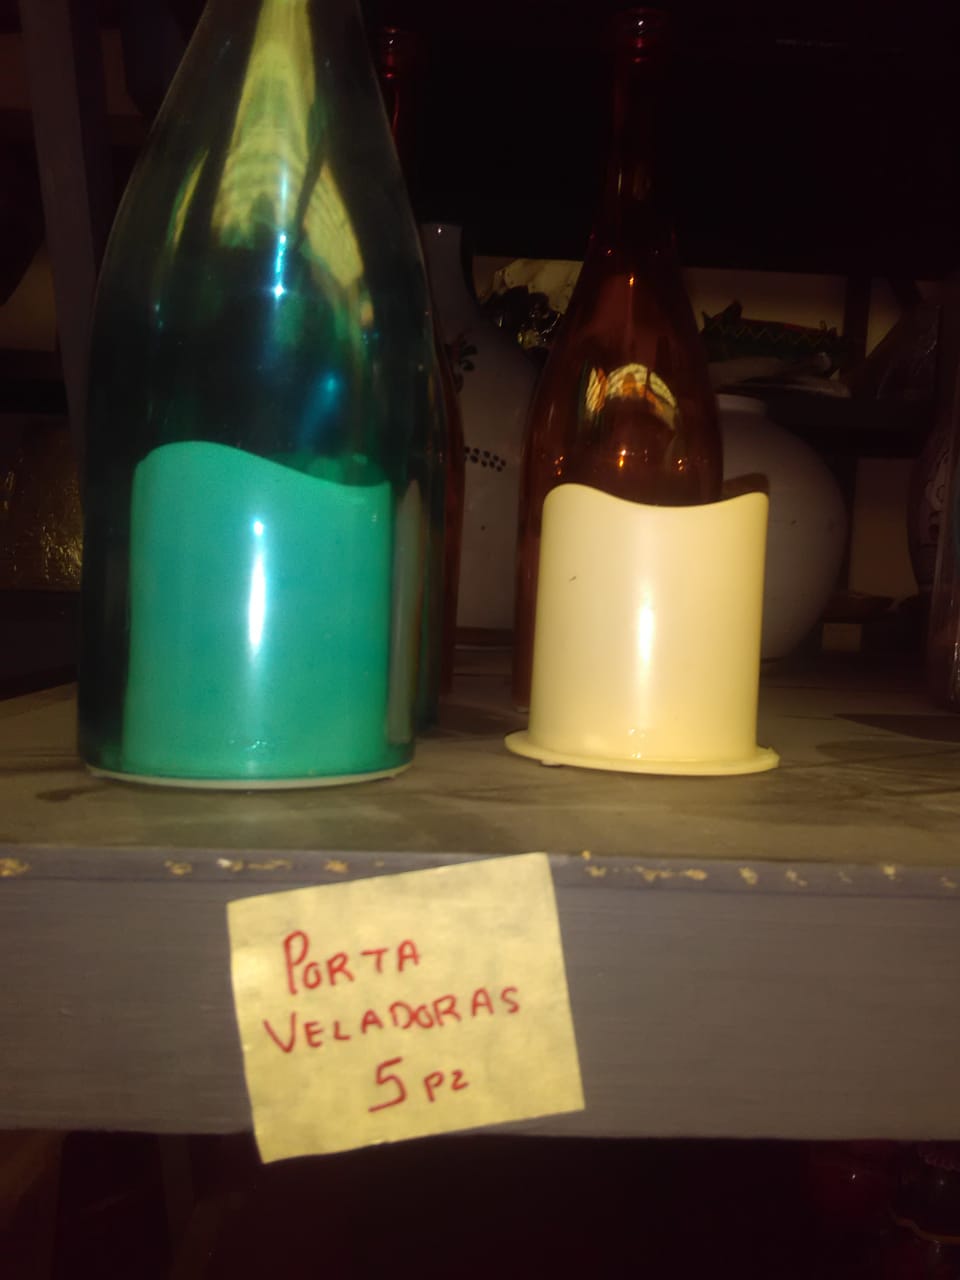 PORTA
VELADORAS
5 PZ